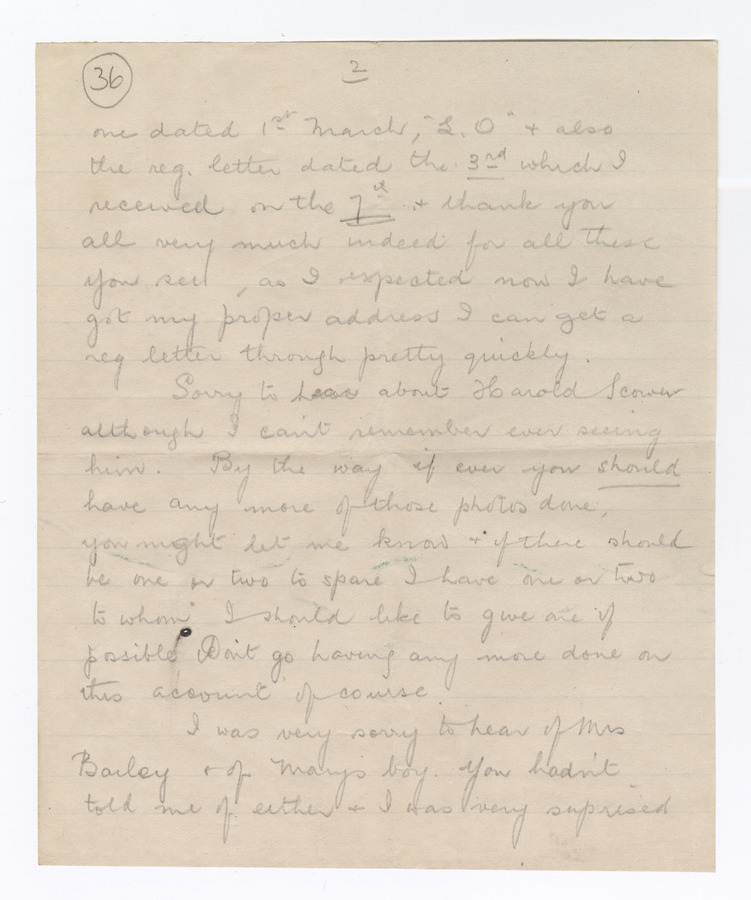 36
2
one dated 1st March, "L.O" & also
the reg. letter dated the 3rd which I
received on the 7th & thank you
all very much indeed for all these
you see, as I expected now I have
got my proper address I can get a
reg letter through pretty quickly.
Sorry to hear about Harold
although I can't remember ever seeing
him. By the way if ever you should
have any more of those photos done,
you might let me know & if there should
be one or two to spare I have one or two
to whom I should like to give one if
possible Don't go having any more done on
this account of course
I was very sorry to hear of Mrs
Bailey & of Mary's boy. You hadn't
told me of either & I was very suprised